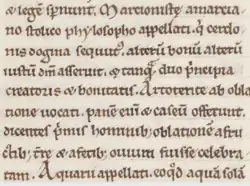 & legē spnunt. Marcionistę amarcia
no stoico phylosopho appellati. qⁱ cerdo
nis dogma secutⁱ. alterū bonū alterū
iustū dm̄ asserunt. & tanq̃ duo p̃ncipia
creatoris & bonitatis. Artotente ab obla
tione uocati. panē eni & caseū offerunt.
dicentes p̃mis hominib; oblationē a
ctib; tr̄e & afetib; ouium fuisse celebra
tam. Aquarii appellati. eoqd aquā solā